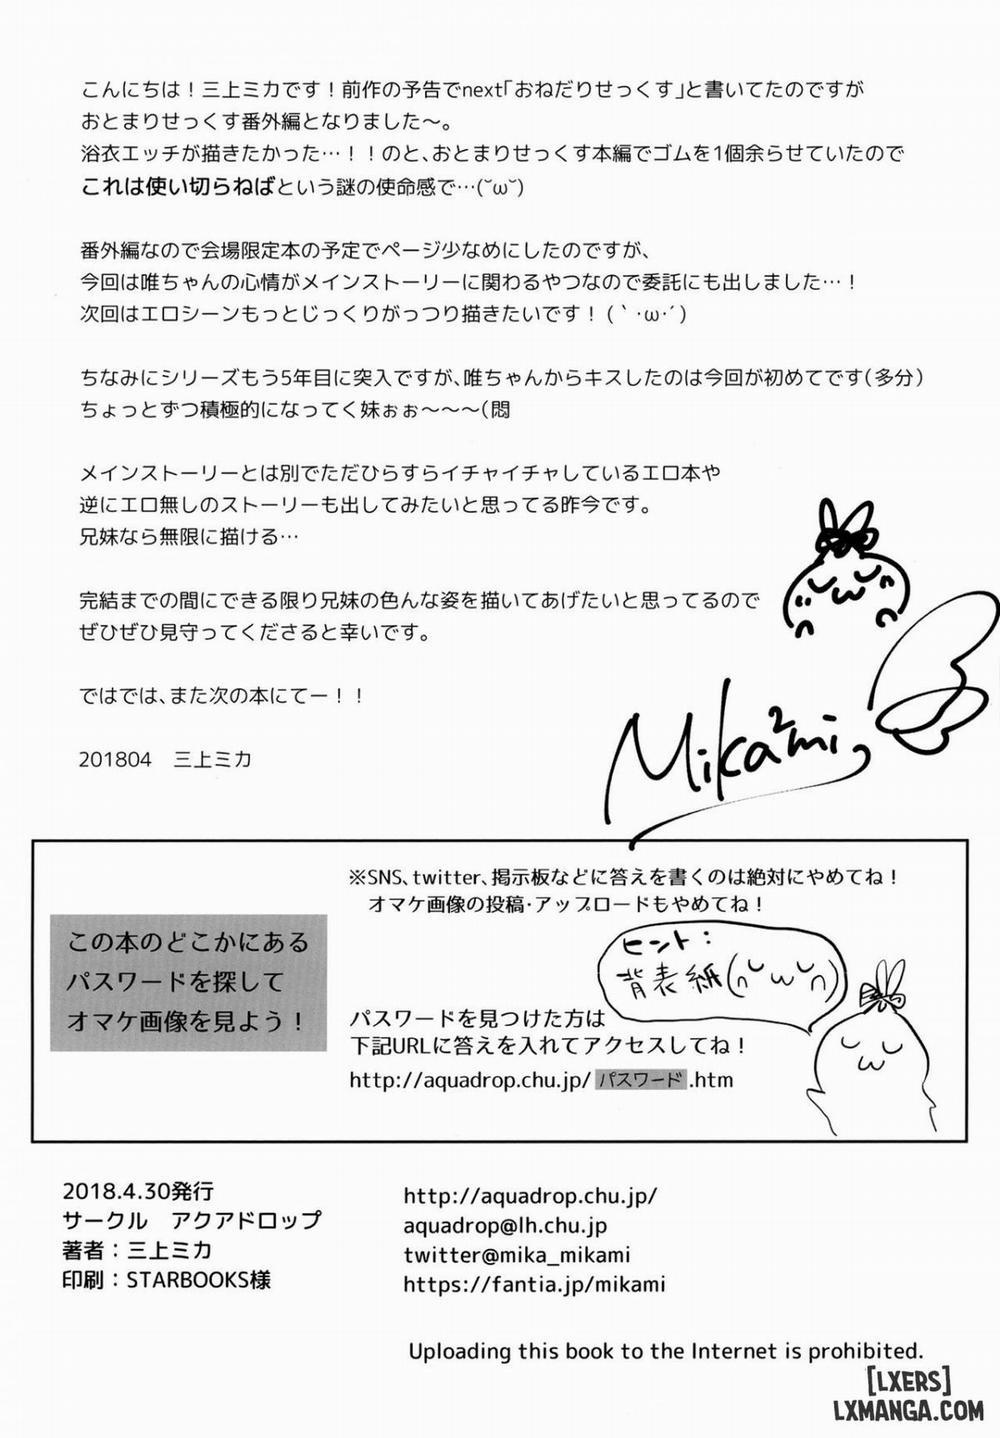 こんにちは！三上ミカです！前作の予告でnext「おねだりせっくす」と書いてたのですが
おとまりせっくす番外編となりました～。
浴衣エッチが描きたかった…！！のと、おとまりせっくす本編でゴムを1個余らせていたので
これは使い切らねばという謎の使命感で…(˘ω˘)
番外編なので会場限定本の予定でページ少なめにしたのですが、
今回は唯ちゃんの心情がメインストーリーに関わるやつなので委託にも出しました…！
次回はエロシーンもっとじっくりがっつり描きたいです！(｀･ω･´)
ちなみにシリーズもう5年目に突入ですが、唯ちゃんからキスしたのは今回が初めてです(多分)
ちょっとずつ積極的になってく妹ぉぉ～～～(悶
メインストーリーとは別でただひらすらイチャイチャしているエロ本や
逆にエロ無しのストーリーも出してみたいと思ってる昨今です。
兄妹なら無限に描ける…
完結までの間にできる限り兄妹の色んな姿を描いてあげたいと思ってるので
ぜひぜひ見守ってくださると幸いです。
ではでは、また次の本にてー！！
201804　三上ミカ
Mika²mi
※SNS、twitter、掲示板などに答えを書くのは絶対にやめてね！
オマケ画像の投稿・アップロードもやめてね！
この本のどこかにある
パスワードを探して
オマケ画像を見よう！
ヒント：
背表紙(∩˘ω˘∩)
パスワードを見つけた方は
下記URLに答えを入れてアクセスしてね！
http://aquadrop.chu.jp/パスワード.htm
2018.4.30発行
サークル　アクアドロップ
著者：三上ミカ
印刷：STARBOOKS様
http://aquadrop.chu.jp/
aquadrop@lh.chu.jp
twitter@mika_mikami
https://fantia.jp/mikami
Uploading this book to the Internet is prohibited.
[LXERS]
LXMANGA.COM